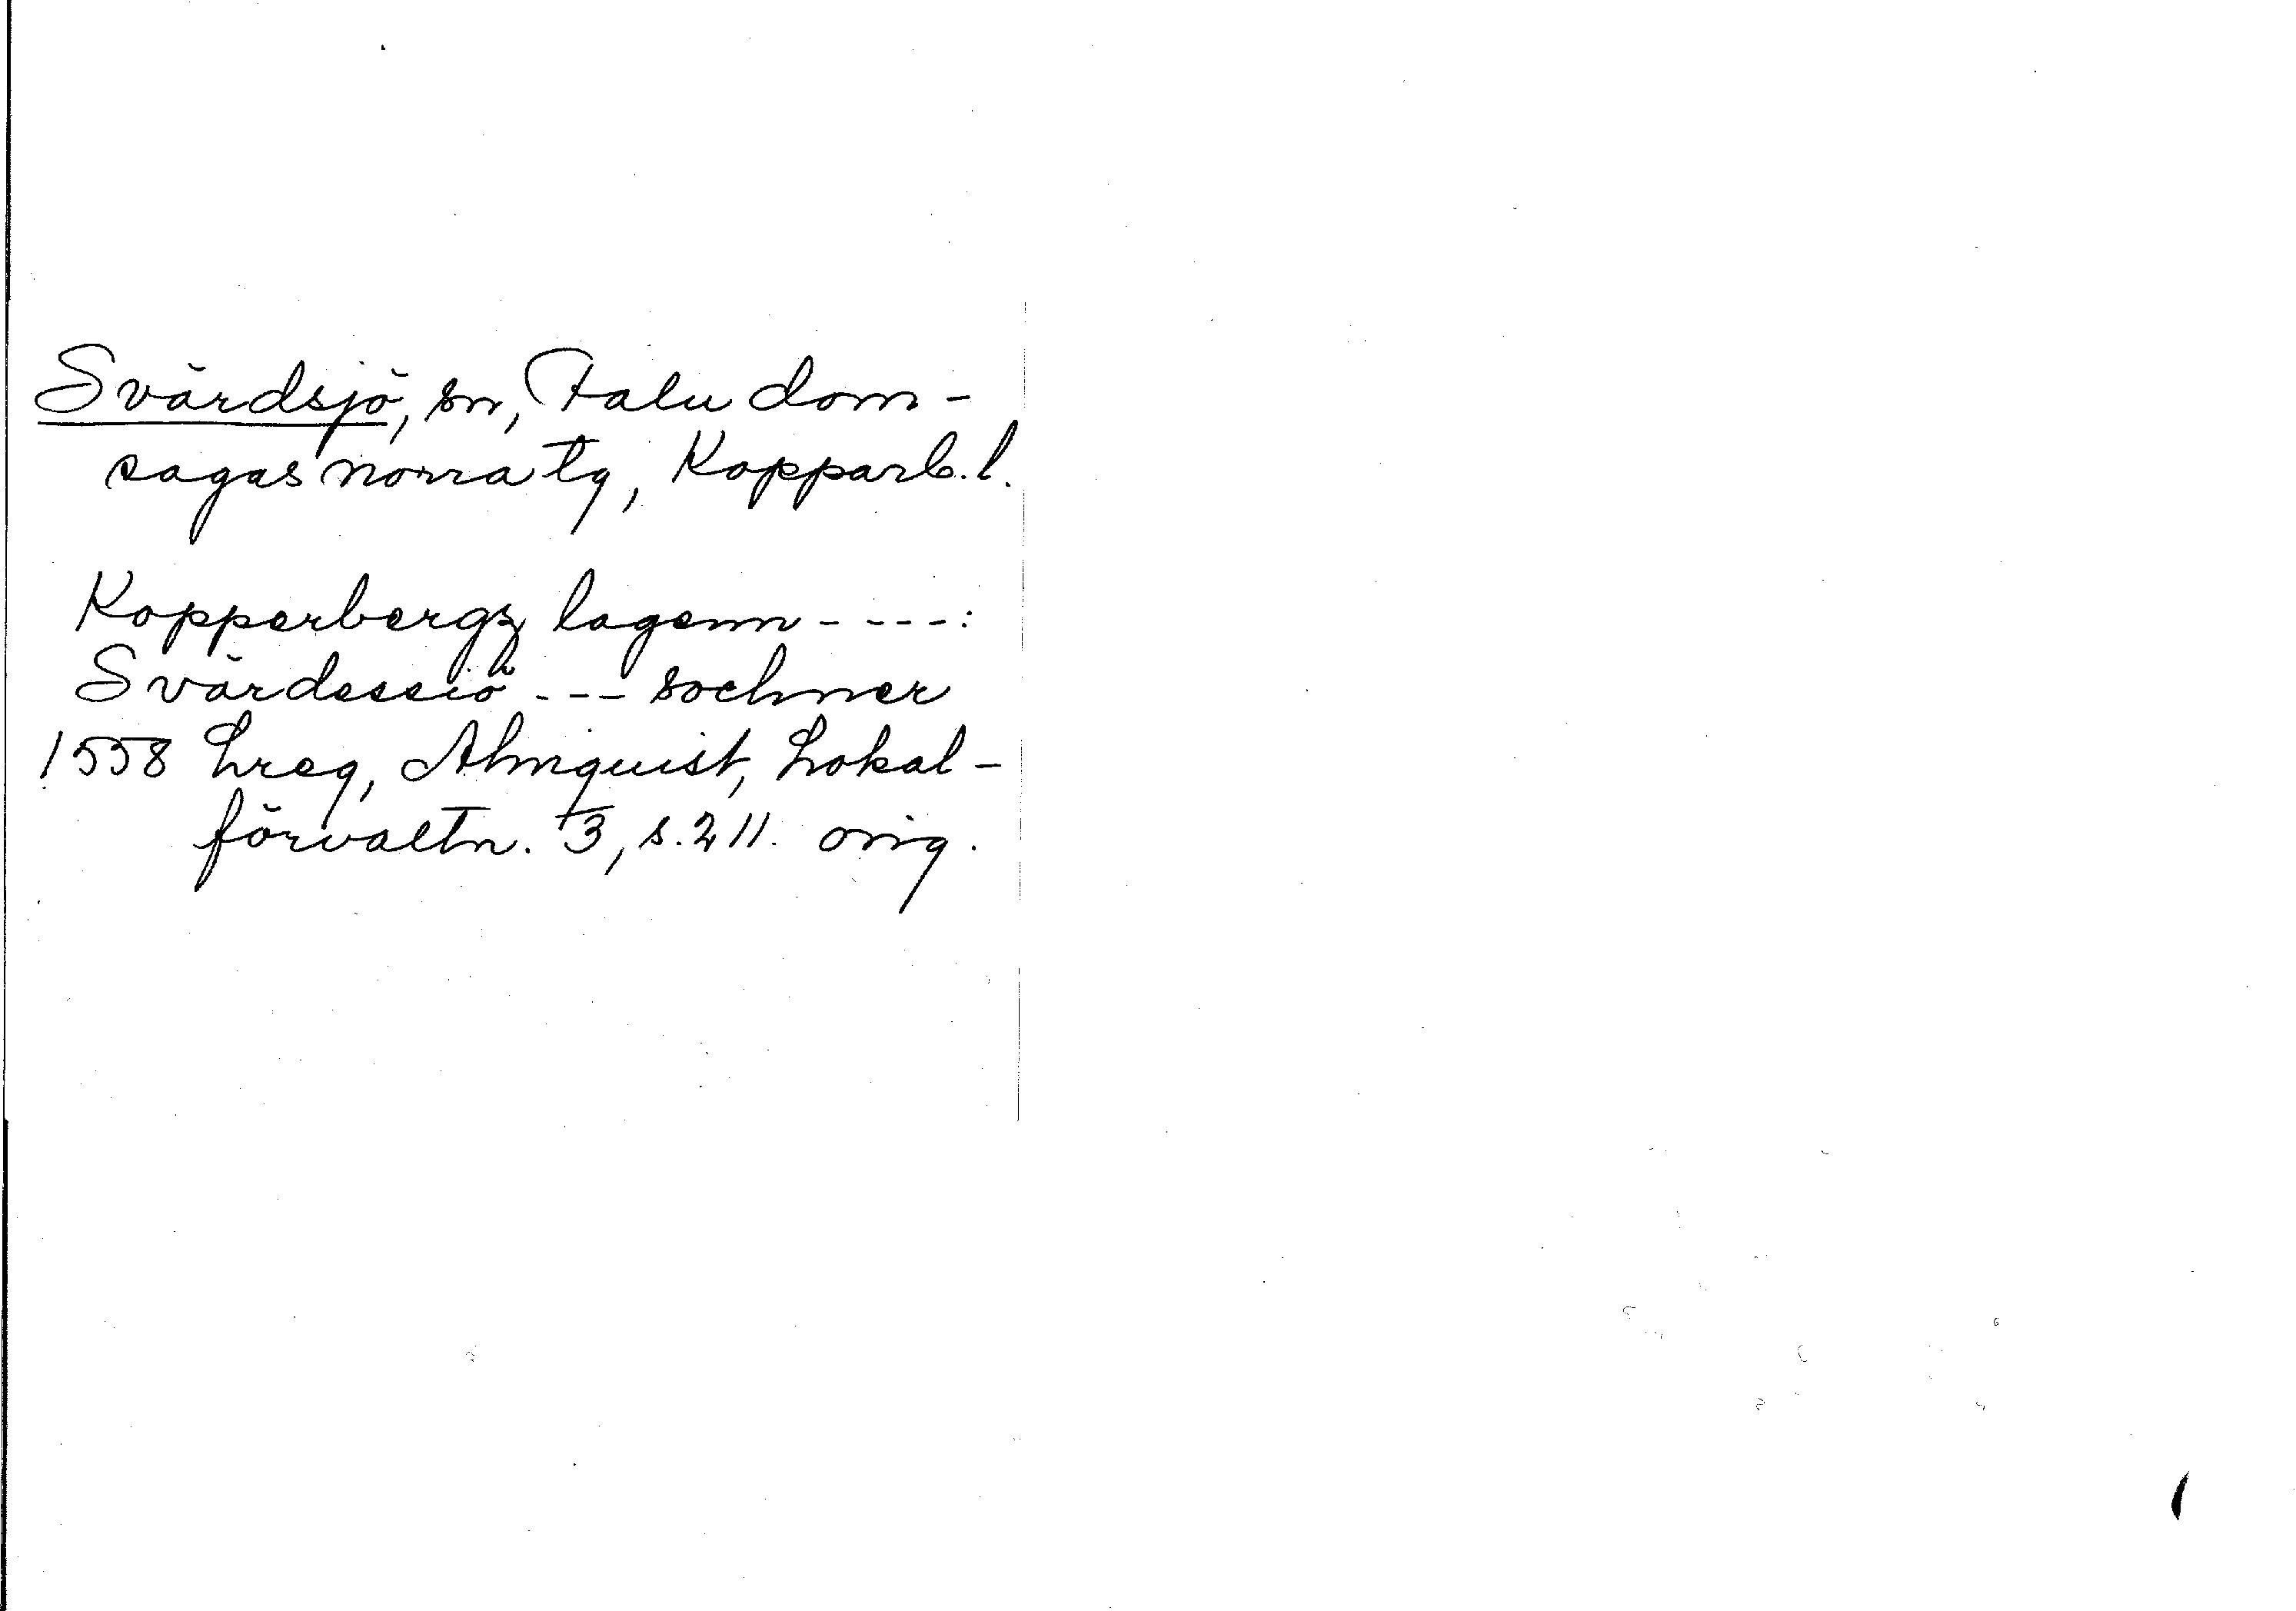 Svärdsjö, sn, Falu dom-
sagas norra tg, Kopparb. l.
Kopperbergz lagenn ----:
Svärdessiö --- sochner
1558 Lreg, Almquist, Lokal-
förvaltn. 3, s. 211. orig.